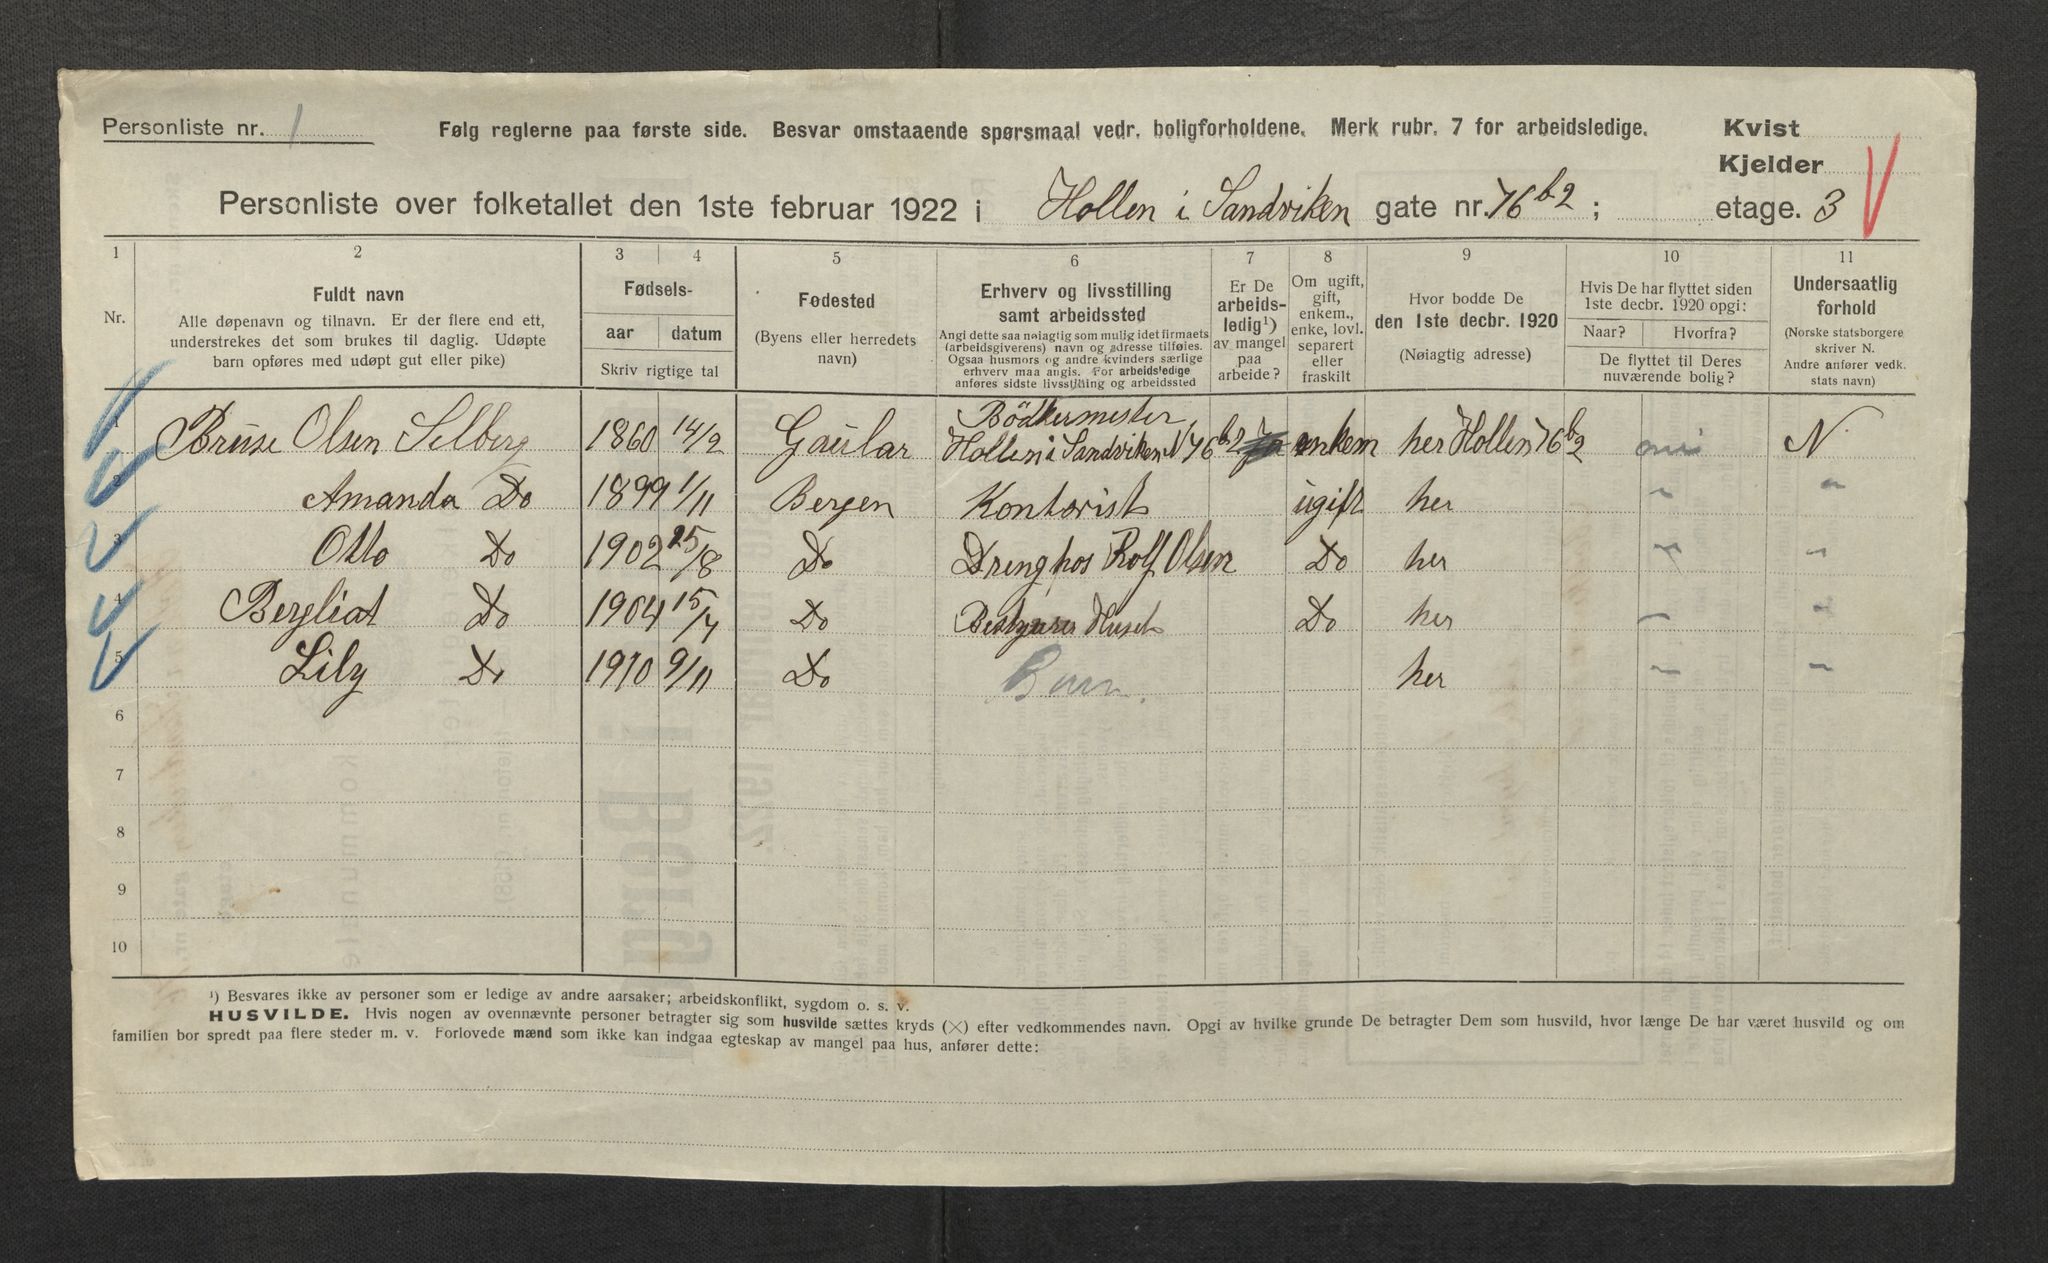 Personliste nr. 1
Følg reglerne paa første side. Besvar omstaaende spørsmaal vedr. boligforholdene. Merk rubr. 7 for arbeidsledige.
Kvist
Kjelder
Personliste over folketallet den 1ste februar 1922 i Hollen i Sandviken gate nr. 76 b2 ; etage. 3
1 2 3 4 5 6 7 8 9 10 11
Nr.
Fuldt navn
Alle døpenavn og tilnavn. Er der flere end ett,
understrekes det som brukes til daglig. Udøpte
barn opføres med udøpt gut eller pike)
Fødsels-
aar datum
Skriv rigtige tal
Fødested
(Byens eller herredets
navn)
Erhverv og livsstilling
samt arbeidssted
Angi dette saa nøiagtig som mulig idet firmaets
(arbeidsgiverens) navn og adresse tilføies.
Ogsaa husmors og andre kvinders særlige
erhverv maa angis. For arbeidsledige
anføres sidste livsstilling og arbeidssted
Er De
arbeids-
ledig¹)
av mangel
paa
arbeide?
Om ugift,
gift,
enkem.,
enke, lovl.
separert
eller
fraskilt
Hvor bodde De
den 1ste decbr. 1920
(Nøiagtig adresse)
Hvis De har flyttet siden
1ste decbr. 1920 opgi:
Naar? Hvorfra?
De flyttet til Deres
nuværende bolig?
Undersaatlig
forhold
(Norske statsborgere
skriver N.
Andre anfører vedk.
stats navn)
Bödkermester
1 Bruse Olsen Selberg 1860 14/2 Gaular Hollen i Sandviken N 76 b2 enkem her Hollen 76 b2 N
2 Amanda Do 1899 1/11 Bergen Kontorist ugift her " "
3 Otto Do 1902 25/8 Do Dreng hos Rolf Olsen Do her " "
4 Bergliot Do 1904 15/7 Do Bestyrer Huset Do her " "
5 Lily Do 1910 9/11 Do Barn. her " "
6
7
8
9
10
¹) Besvares ikke av personer som er ledige av andre aarsaker; arbeidskonflikt, sygdom o. s. v.
HUSVILDE. Hvis nogen av ovennævnte personer betragter sig som husvilde sættes kryds (×) efter vedkommendes navn. Opgi av hvilke grunde De betragter Dem som husvild, hvor længe De har været husvild og om
familien bor spredt paa flere steder m. v. Forlovede mænd som ikke kan indgaa egteskap av mangel paa hus, anfører dette: